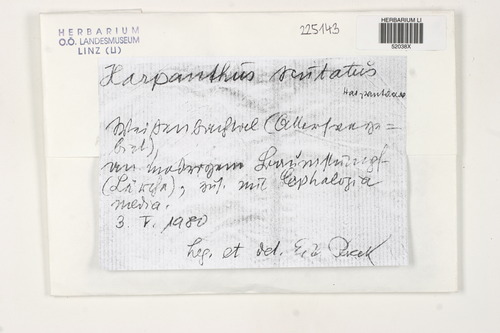 HERBARIUM
O.Ö. LANDESMUSEUM
LINZ (LI)
225143
HERBARIUM LI
52038X
Harpanthus scutatus
Weißenbachtal (Attersee
an moderigem Baumstrunk
(Lärche), zus. mit Cephalozia
media.
3. V. 1980
Leg. et det.